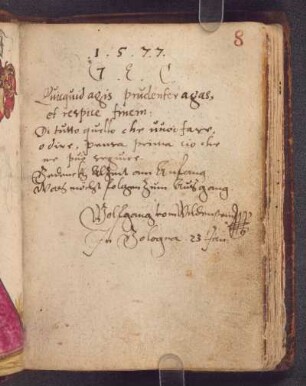 8
1.5.77.
G E C
Quicquid agis prudenter agas,
et respice finem.
Di tutto quello che vuoi fare,
o dire, pensa prima cio che
ne può seguire.
am Anfang
Was möcht folgen zum Ausgang
Wolfgang vom
In Bologna 23 Jan.